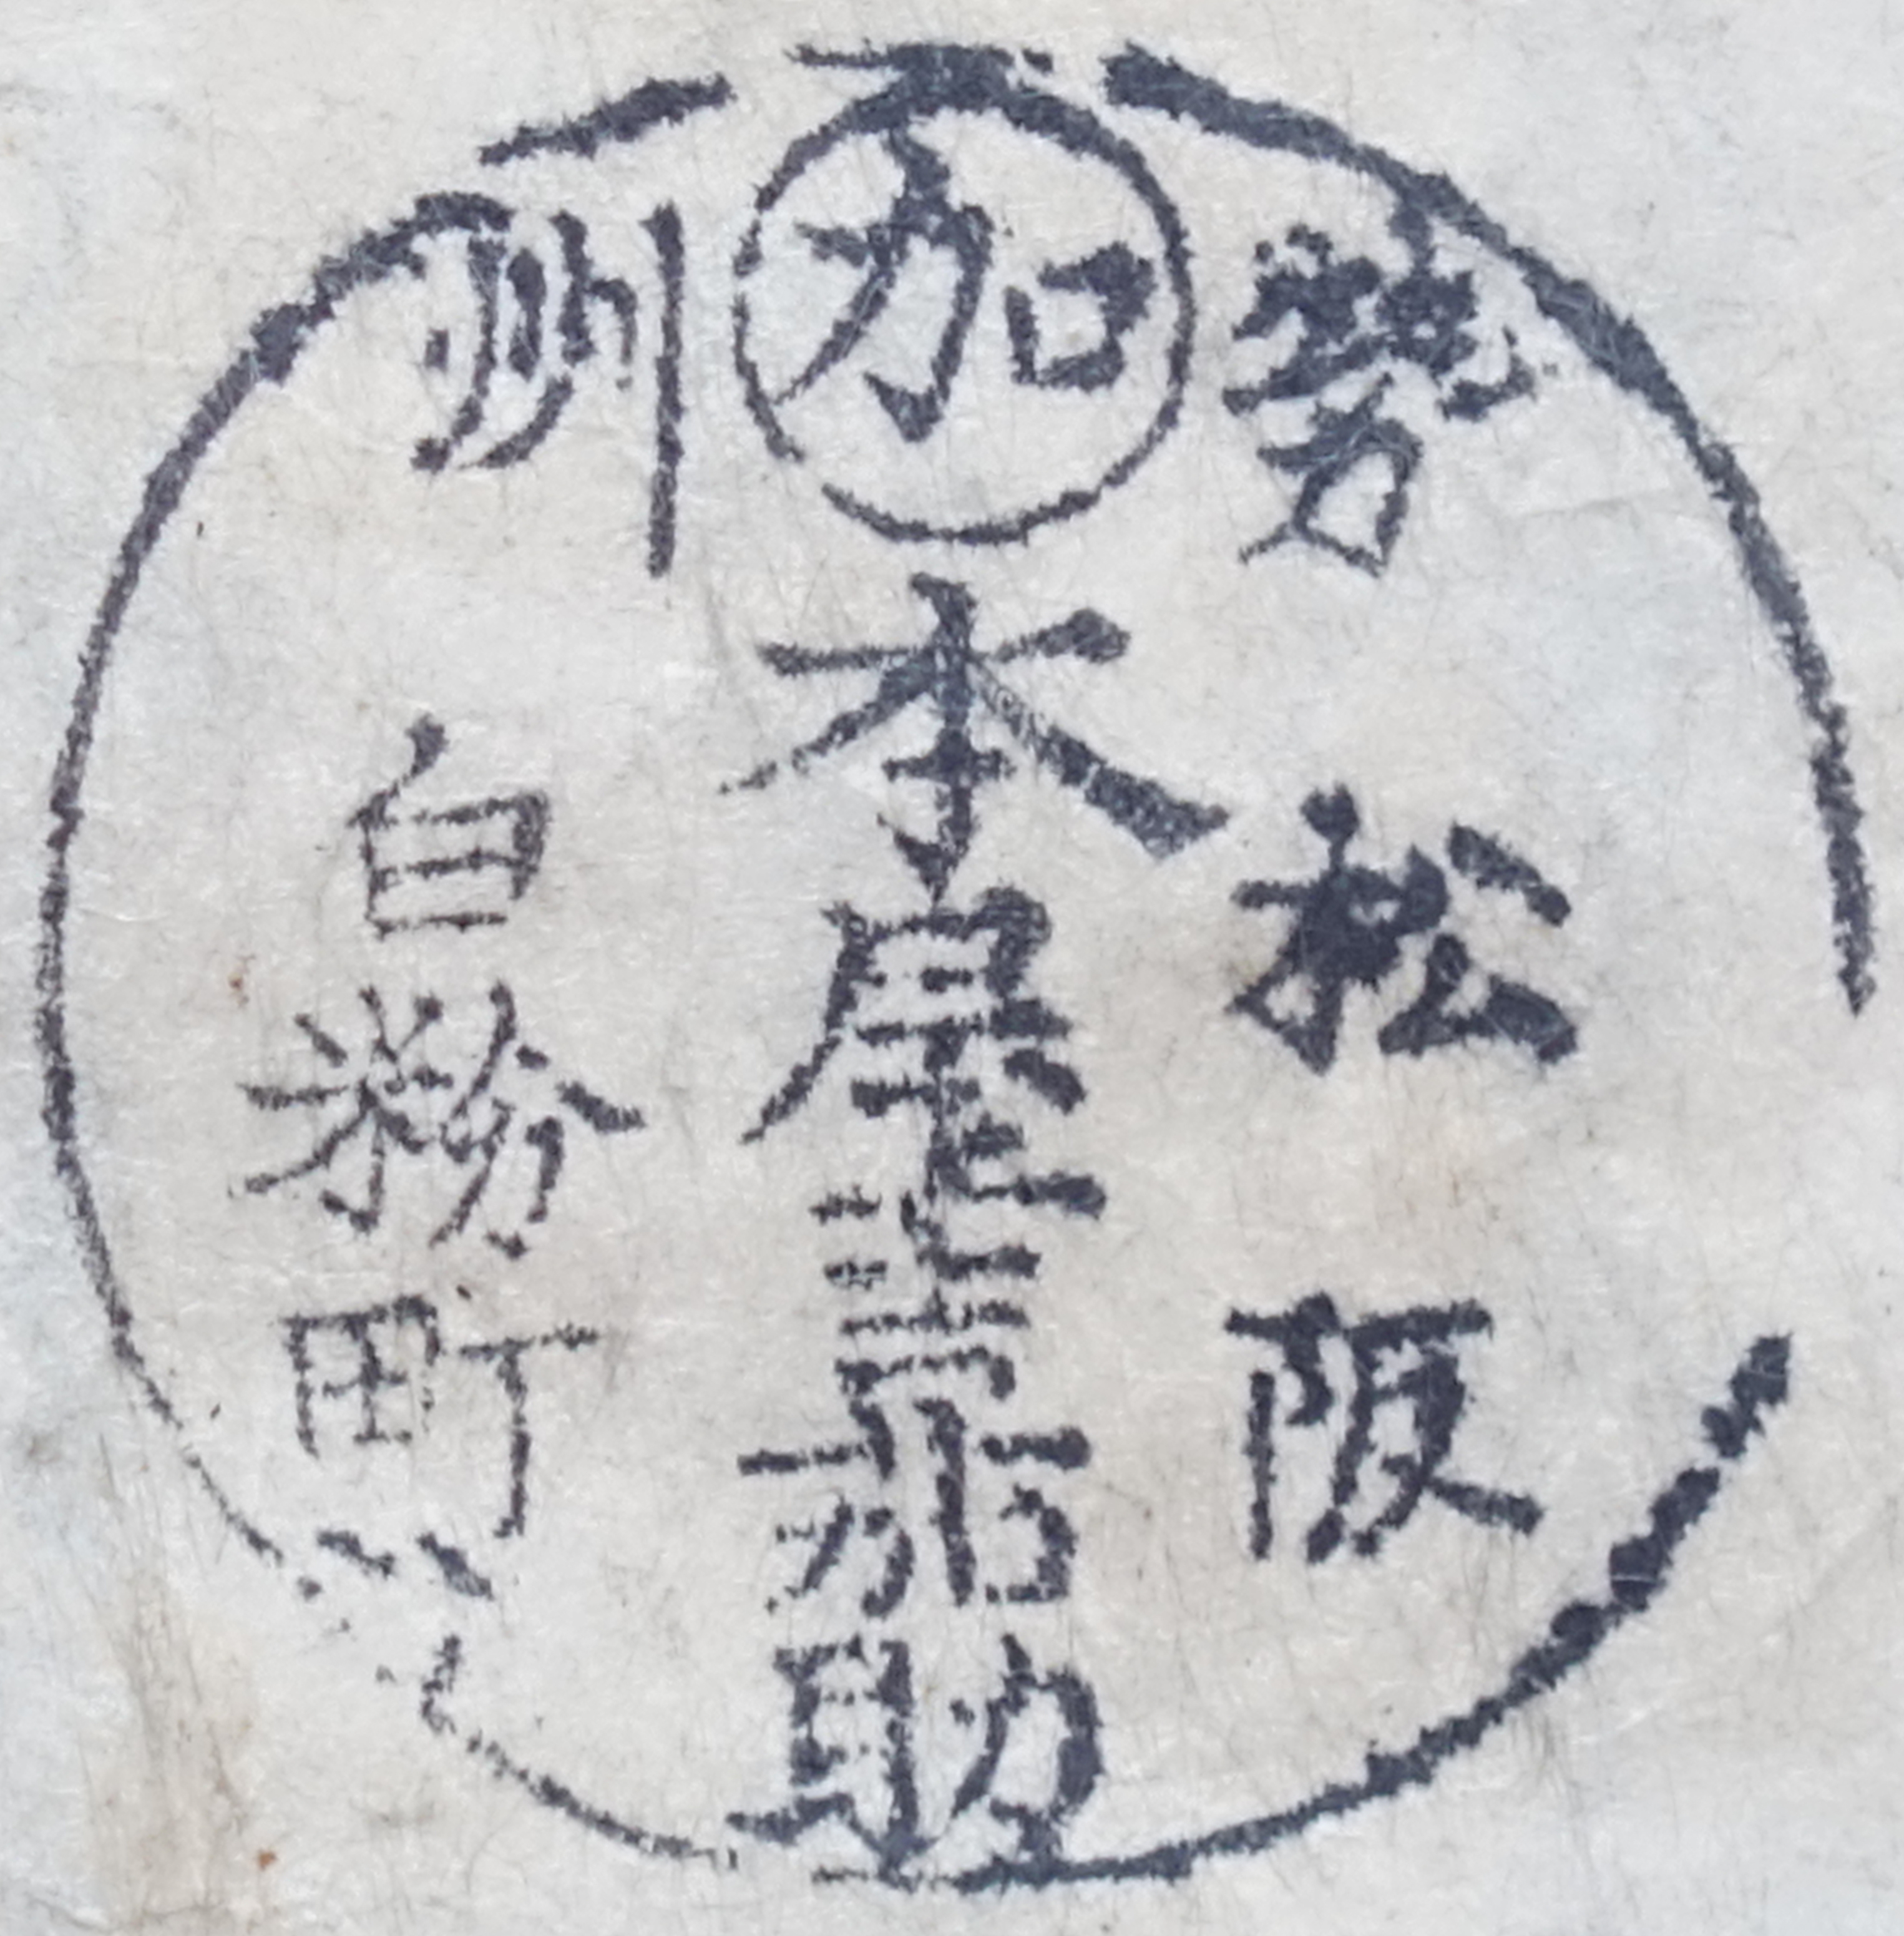 勢州
松阪
加
本屋嘉助
白粉町